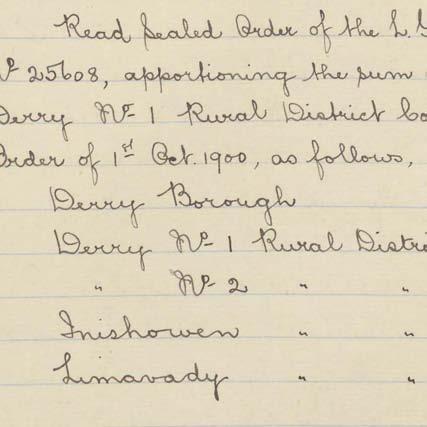 Read Sealed Order of the L.
No 25608, apportioning the sum
Derry No 1 Rural District
Order of 1st Oct. 1900, as follows,
Derry Borough
Derry No 1 Rural Distri
" No 2 " "
Inishowen " "
Limavady " "